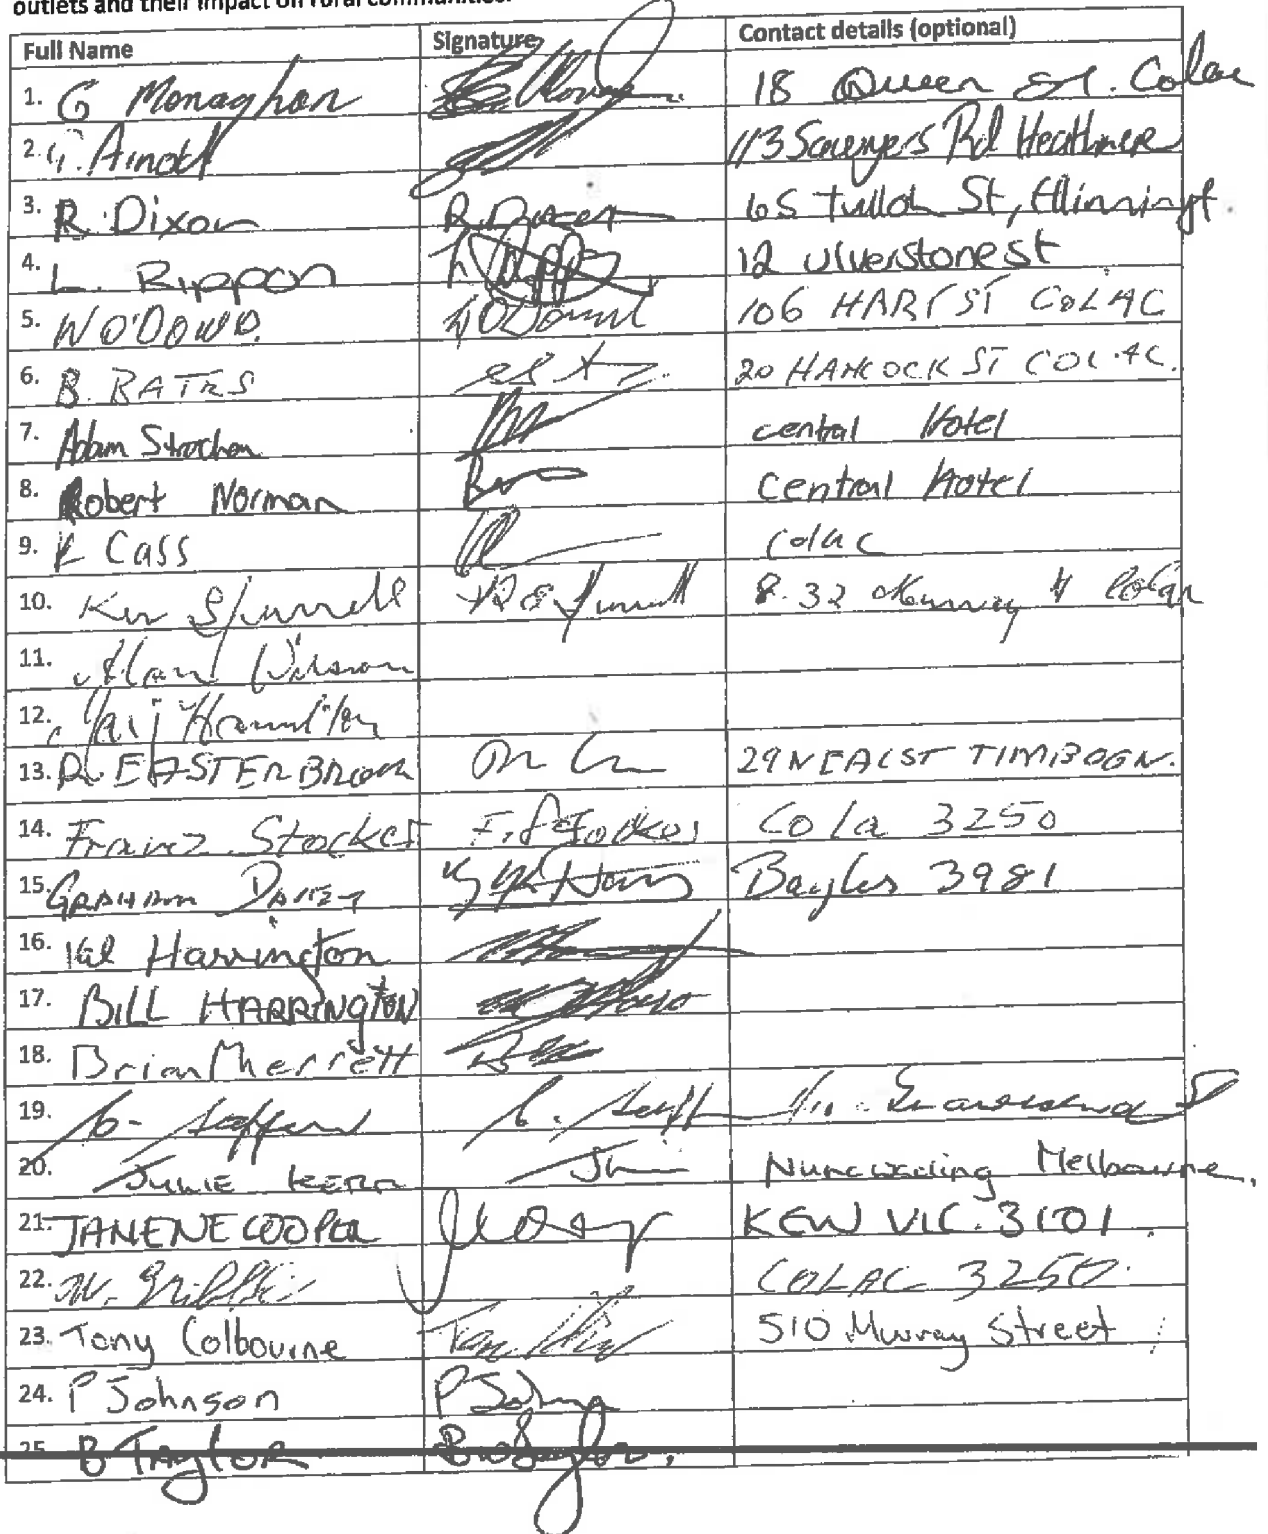 outlets and their impact on rural communities.
Full Name Signature Contact details (optional)
1. G Monaghan 18 Queen St. Colac
2. G. Arnott 113 Sawyers Rd Heathmere
3. R. Dixon R. Dixon 65 Tulloh St, Elliminyt.
4. L. Rippon L Rippon 12 Ulverstone st
5. W O'DOWD. W O'Dowd 106 HART ST COLAC
6. B. BATES 20 HANCOCK ST COLAC.
7. Adam Strachan central Hotel
8. Robert Norman Central Hotel
9. K Cass Colac
10. Ken 8.32 Murray st Colac
11. Alan Wilson
12. Hamilton
13. R. EASTERBROOK 29 NEAL ST TIMBOON.
14. Franz Stocker F. Stocker Cola 3250
15. GRAHAM Bayles 3981
16. Val Harrington
17. BILL HARRINGTON
18. Brian Merrett
19.
20. JULIE KERR Nunawading Melbourne.
21. JANENE COOPER KEW VIC. 3101.
22. W. Griffin COLAC 3250.
23. Tony Colbourne 510 Murray Street
24. P Johnson P Johnson
25 B TAYLOR B Taylor.